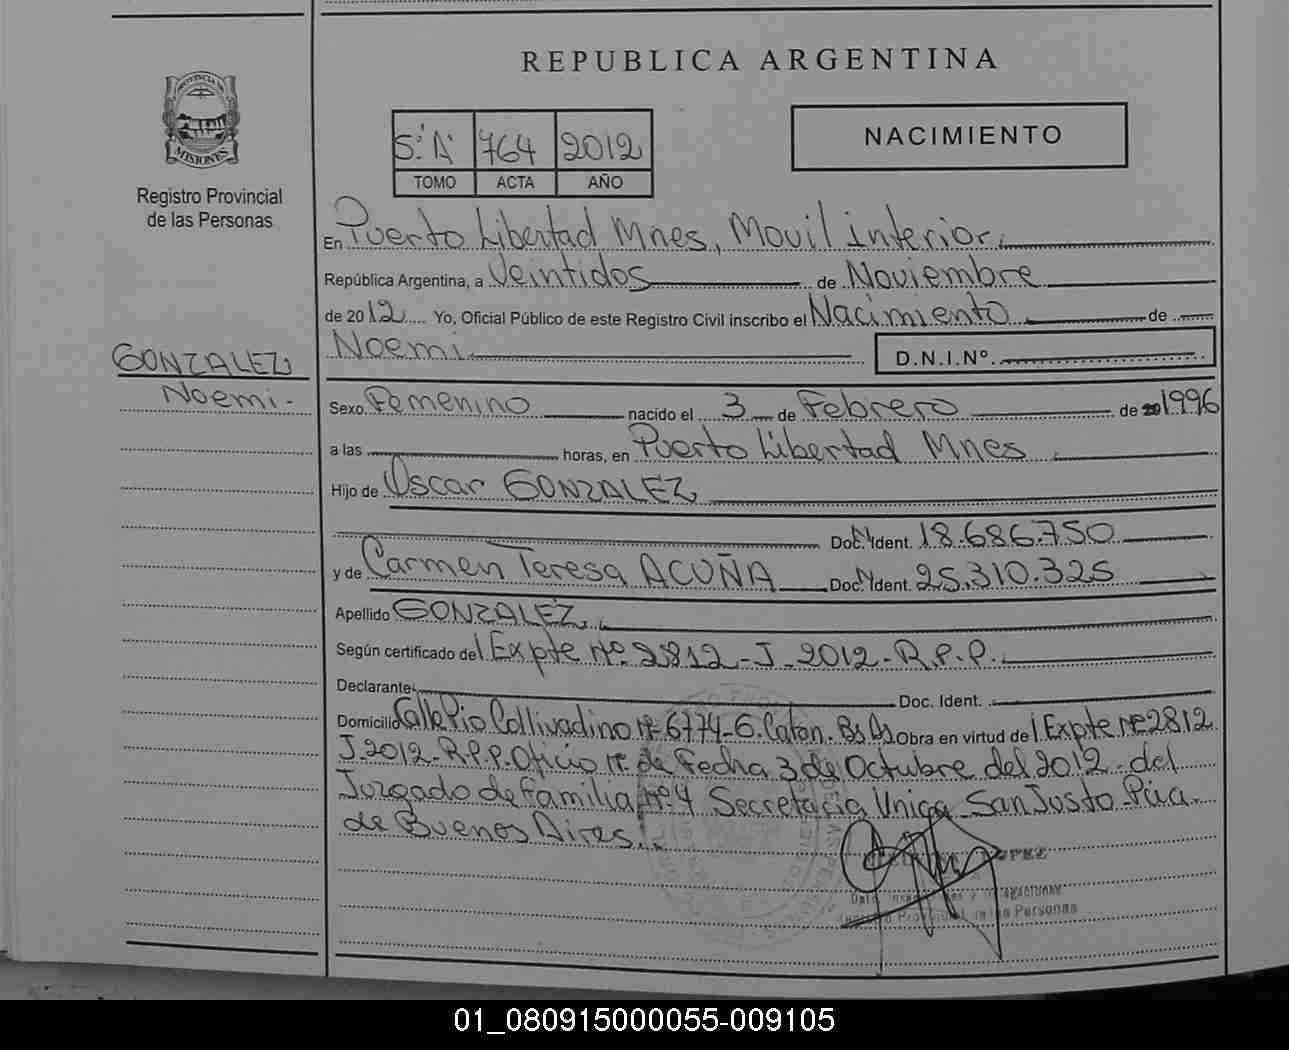 REPUBLICA ARGENTINA
PROVINCIA DE
MISIONES
Registro Provincial
de las Personas
S.A. 764 2012
TOMO ACTA AÑO
NACIMIENTO
En Puerto Libertad Mnes, Movil interior.
República Argentina, a Veintidos de Noviembre
de 2012 Yo, Oficial Público de este Registro Civil inscribo el Nacimiento de
Noemi D.N.I.Nº.
GONZALEZ
Noemi.-
Sexo Femenino nacido el 3 de Febrero de 1996
a las horas, en Puerto Libertad Mnes
Hijo de Oscar GONZALEZ
Doc. Ident. 18.686.750
y de Carmen Teresa ACUÑA Doc. Ident. 25.310.325
Apellido GONZALEZ
Según certificado del Expte Nº 2812-J-2012-R.P.P.
Declarante Doc. Ident.
Domicilio Calle Pio Collivadino Nº 6774-G. Caton. Bs As Obra en virtud del Expte Nº 2812
J.2012-R.P.P. Oficio Nº de Fecha 3 de Octubre del 2012 del
Juzgado de Familia Nº 4 Secretaria Unica San Justo-Pcia.
de Buenos Aires.
LOPEZ
Provincial de las Personas
01_080915000055-009105